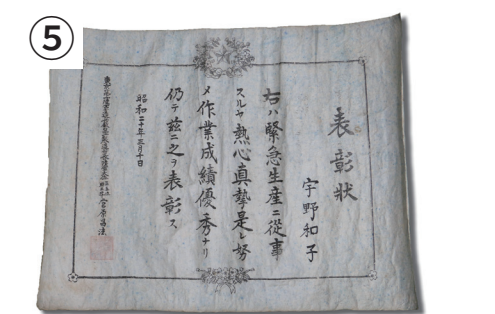 ⑤
表彰状
宇野和子
右ハ緊急生産ニ従事
スルヤ熱心真勢是レ努
メ作業成績優秀ナリ
仍テ玆ニ之ヲ表彰ス
昭和二十年三月十日
宮原